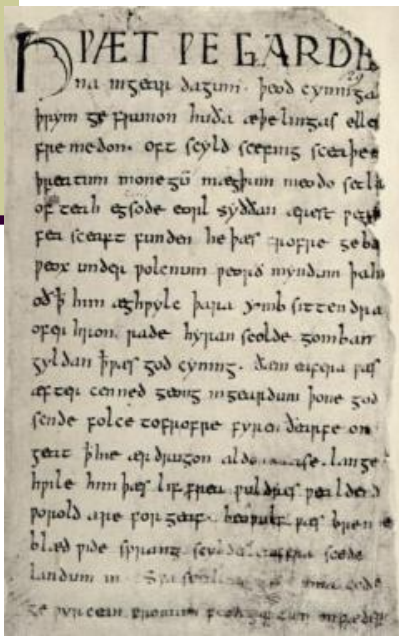 HǷÆT ǷE GARDE
na ingear dagum. þeod cyninga
þrym ge frunon huða æþelingas elle
fremedon. oft scyld scefing sceaþe
þreatum monegū mægþum meodo setla
of teah egsode eorl syððan ærest ƿear
fea sceaft funden he þæs frofre geba
ƿeox under ƿolcnum ƿeorð myndum þah
oð ꝥ him æghƿylc þara ymb sittendra
ofer hron rade hyran scolde gomban
gyldan ꝥ ƿæs god cyning. ðæm eafera ƿæs
æfter cenned geong in geardum þone god
sende folce tofrofre fyren ðearfe on
geat ꝥ hie ær drugon aldor ase. lange
hƿile him þæs lif frea ƿuldres ƿealdend
ƿorold are for geaf. beoƿulf ƿæs breme
blæd ƿide sprang scyldes eafera scede
landum in. Sƿa guma gode
ge ƿyrcean fromum feoh giftum